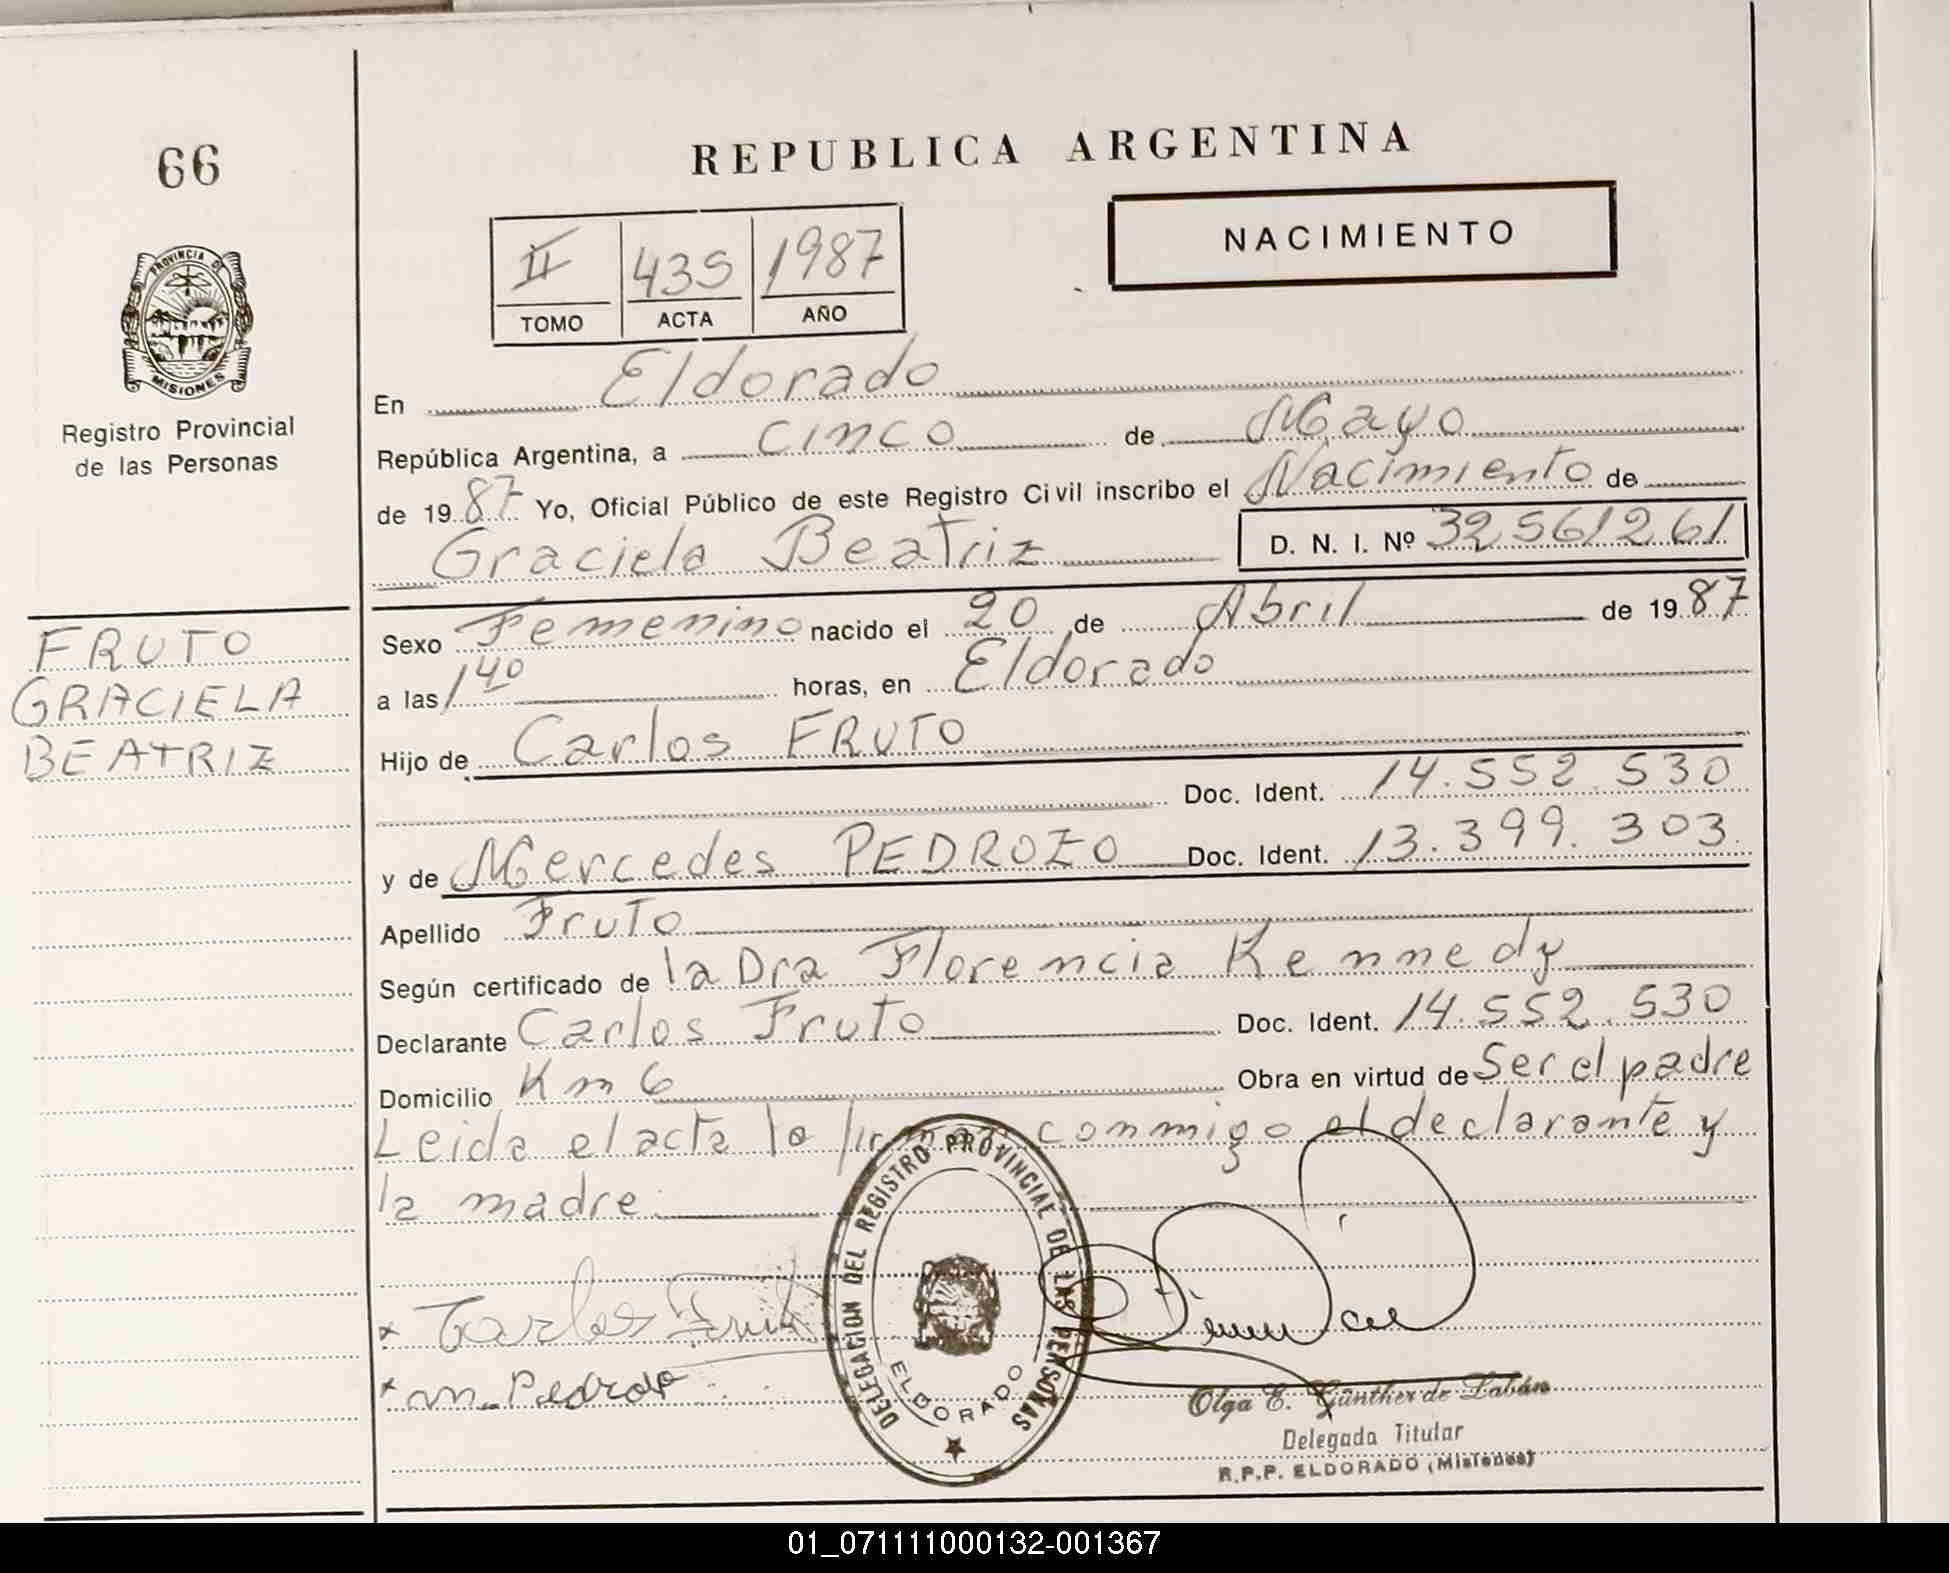 66
REPUBLICA ARGENTINA
NACIMIENTO
II 435 1987
TOMO ACTA AÑO
PROVINCIA DE
MISIONES
Registro Provincial
de las Personas
FRUTO
GRACIELA
BEATRIZ
En Eldorado
República Argentina, a cinco de Mayo
de 1987 Yo, Oficial Público de este Registro Civil inscribo el Nacimiento de
Graciela Beatriz D. N. I. Nº 32561261
Sexo Femenino nacido el 20 de Abril de 1987
a las 1 40 horas, en Eldorado
Hijo de Carlos FRUTO
Doc. Ident. 14.552.530
y de Mercedes PEDROZO Doc. Ident. 13.399.303
Apellido Fruto
Según certificado de la Dra Florencia Kennedy
Declarante Carlos Fruto Doc. Ident. 14.552.530
Domicilio Km 6 Obra en virtud de Ser el padre
Leida el acta la firman conmigo el declarante y
la madre.
DELEGACION DEL REGISTRO PROVINCIAL DE LAS PERSONAS
ELDORADO
x Carlos Fruto
x M. Pedrozo
Olga E. Günther de Labán
Delegada Titular
R.P.P. ELDORADO (Misiones)
01_071111000132-001367